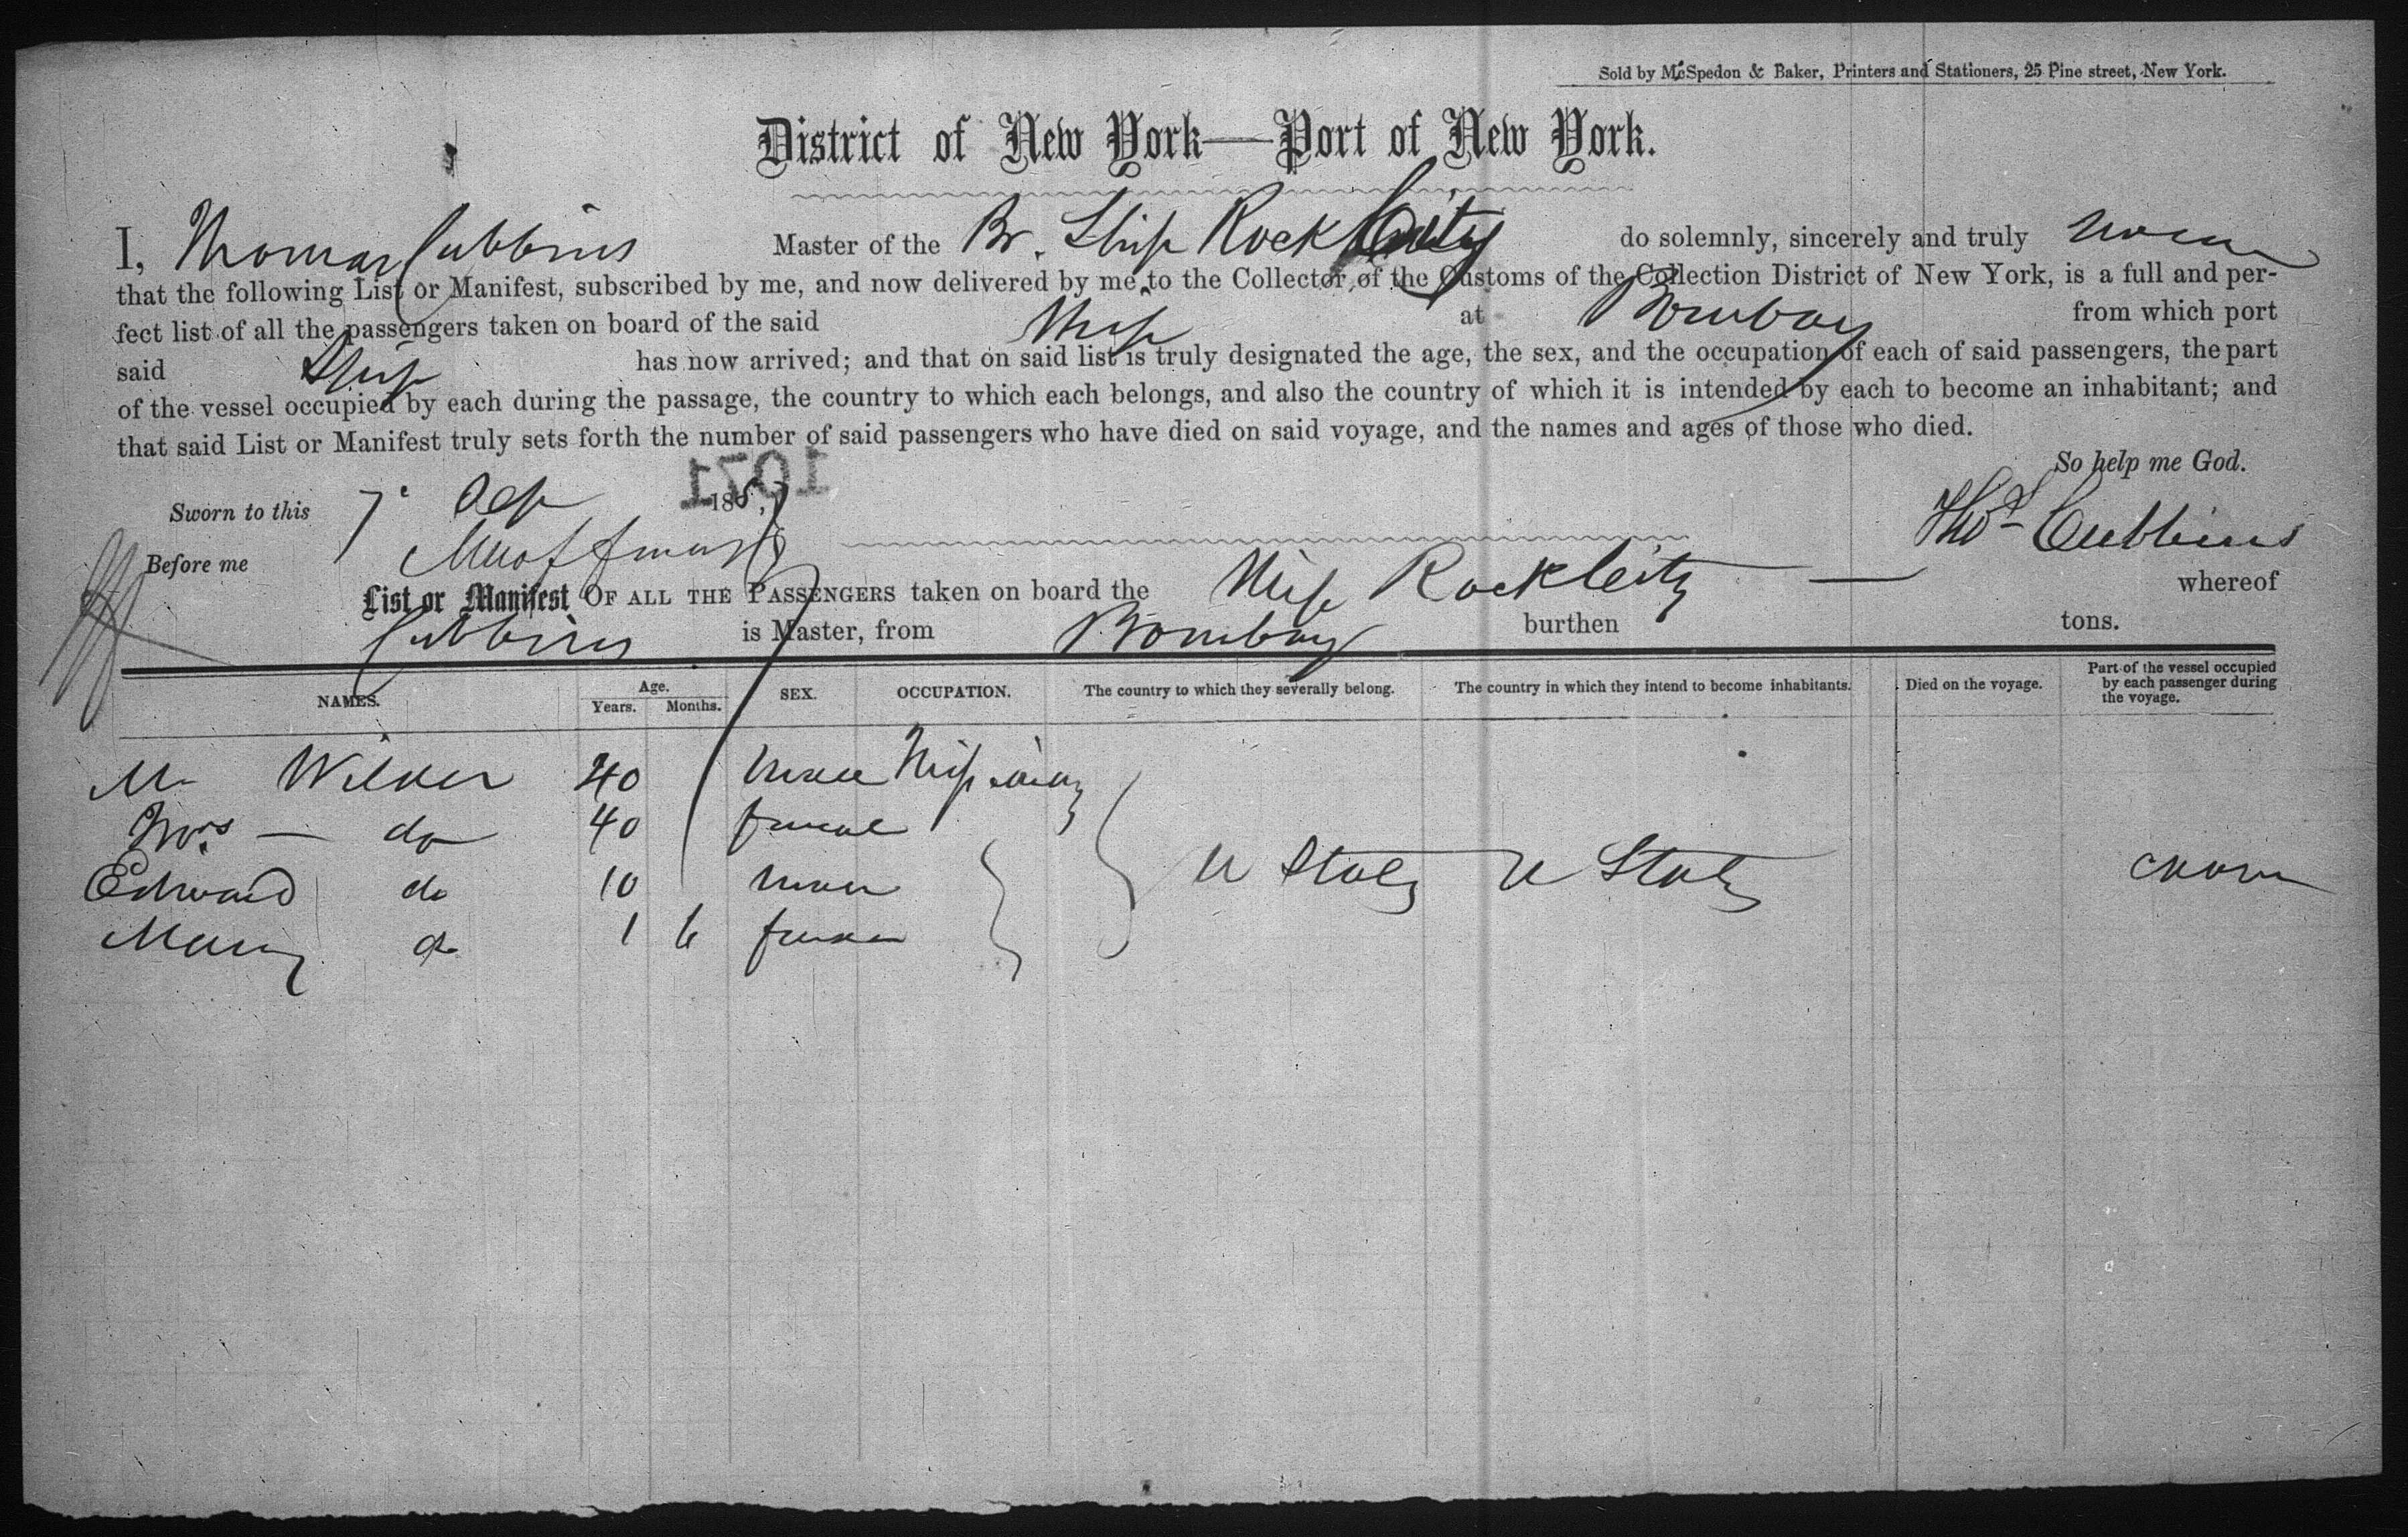 Sold by McSpedon & Baker, Printers and Stationers, 25 Pine street, New York.
District of New York—Port of New York.
I, Thomas Cubbins Master of the Br. Ship Rock City do solemnly, sincerely and truly swear
that the following List or Manifest, subscribed by me, and now delivered by me to the Collector of the Customs of the Collection District of New York, is a full and per-
fect list of all the passengers taken on board of the said Ship at Bombay from which port
said Ship has now arrived; and that on said list is truly designated the age, the sex, and the occupation of each of said passengers, the part
of the vessel occupied by each during the passage, the country to which each belongs, and also the country of which it is intended by each to become an inhabitant; and
that said List or Manifest truly sets forth the number of said passengers who have died on said voyage, and the names and ages of those who died.
So help me God.
1071
Sworn to this 7 Sep 188
Thos Cubbins
Before me
List or Manifest OF ALL THE PASSENGERS taken on board the Ship Rock City whereof
Cubbins is Master, from Bombay burthen tons.
NAMES. Age. Years. Months. SEX. OCCUPATION. The country to which they severally belong. The country in which they intend to become inhabitants. Died on the voyage. Part of the vessel occupied by each passenger during the voyage.
Mr Wilder 40 male Missionary
Mrs — do 40 female
Edward do 10 male U States U States Cabin
Mary do 1 6 female